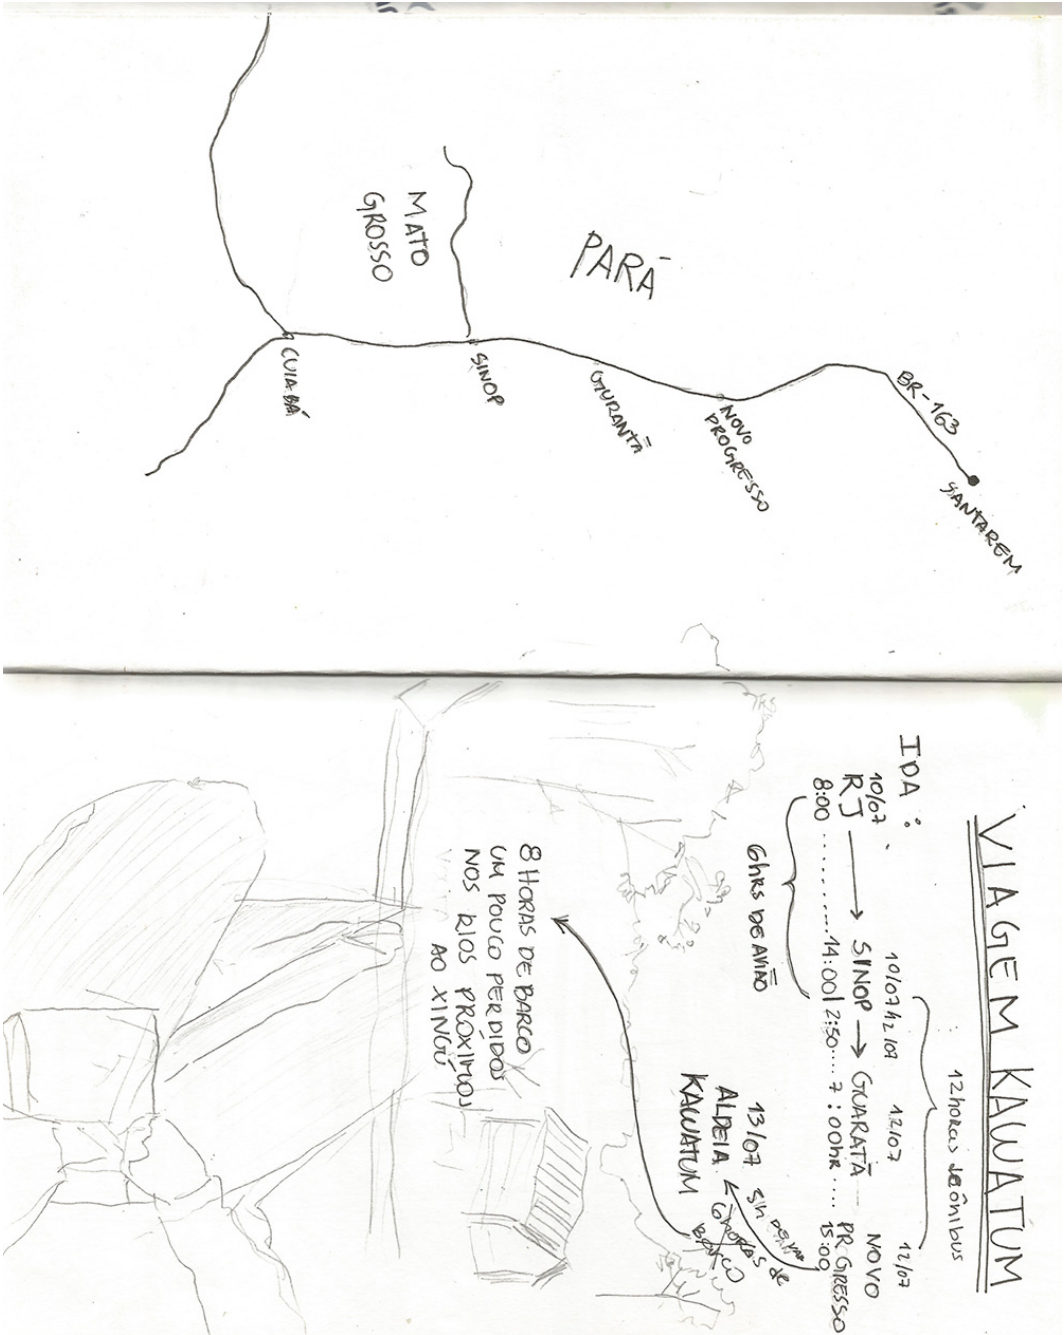 PARÁ
MATO
GROSSO
CUIABÁ
SINOP
GURANTÃ
NOVO
PROGRESSO
BR-163
SANTAREM
VIAGEM KAWATUM
12 horas de ônibus
IDA:
10/07 12/07 12/07
RJ → SINOP → GUARATÃ NOVO
PR GRESSO
8:00 ............14:00| 2:50....7:00hr .... 15:00
6hrs DE AVIÃO
13/07
ALDEIA
KAWATUM
6 HORAS de
BARCO
8 HORAS DE BARCO
UM POUCO PERDIDOS
NOS RIOS PRÓXIMOS
AO XINGÚ